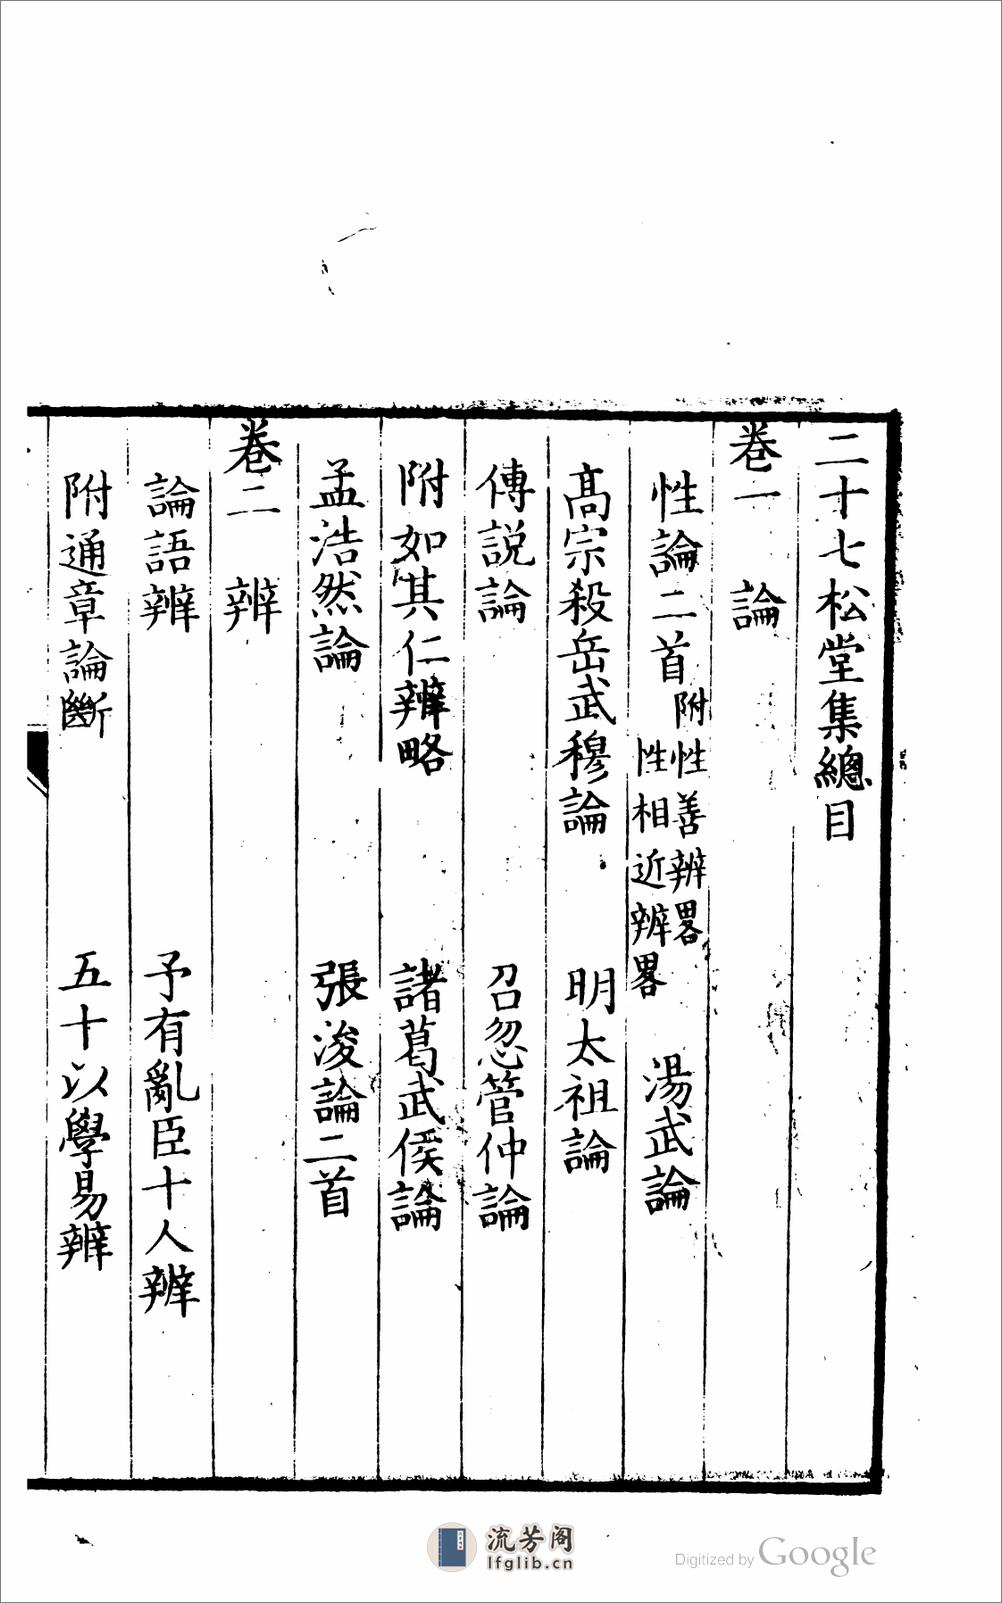 二十七松堂集總目
卷一　論
性論二首 附性善辨畧 性相近辨畧　湯武論
高宗殺岳武穆論　明太祖論
傅説論　召忽管仲論
附如其仁辨略　諸葛武侯論
孟浩然論　張浚論二首
卷二　辨
論語辨　予有亂臣十人辨
附通章論斷　五十以學易辨
流芳阁
lfglib.cn
Digitized by Google